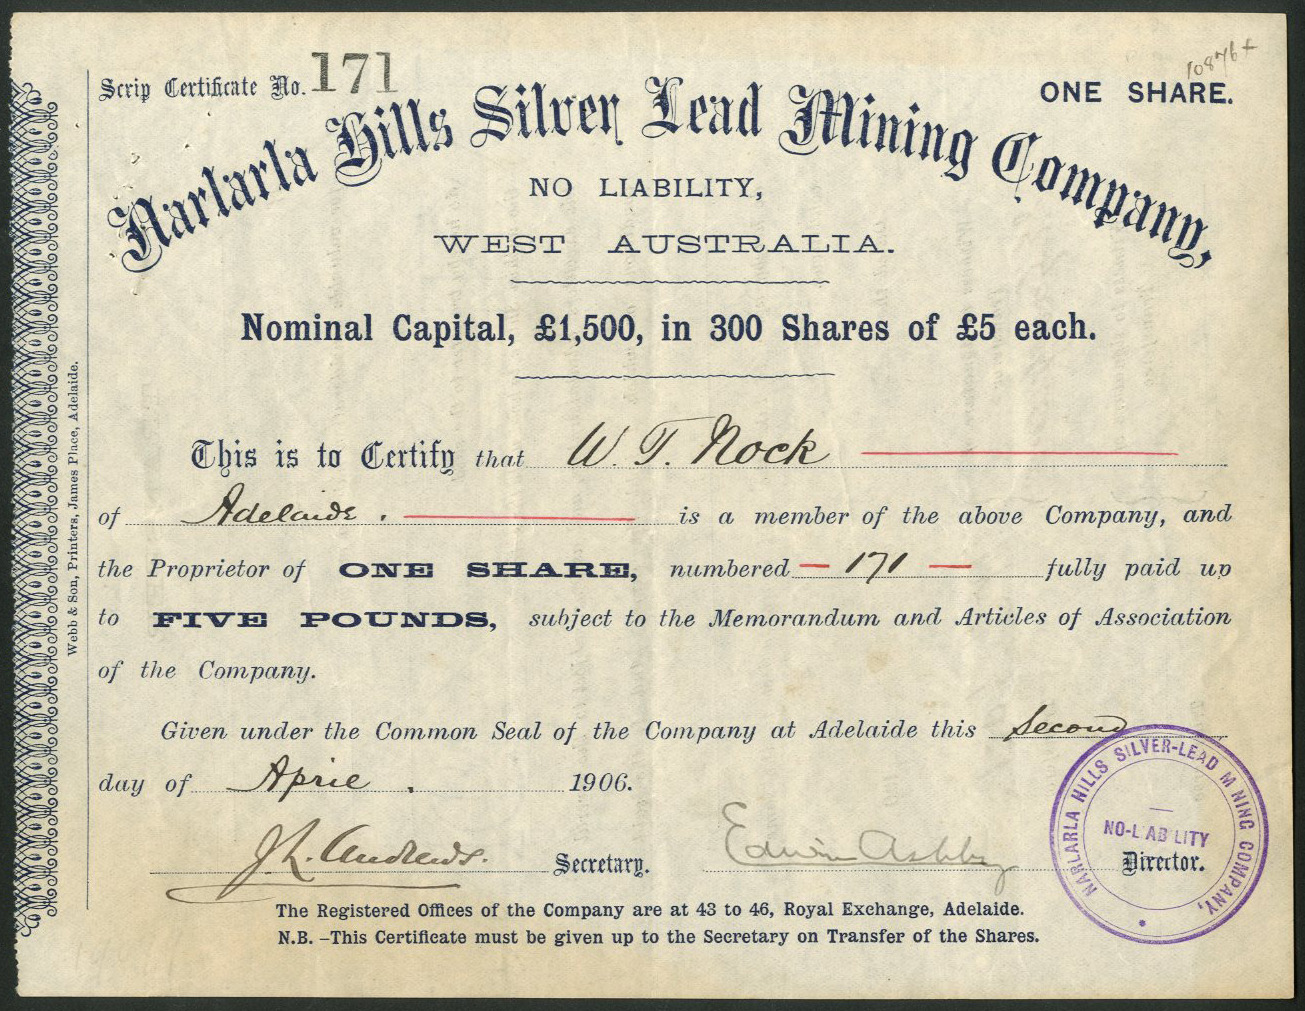 Scrip Certificate No. 171
10876+
ONE SHARE.
Narlarla Hills Silver Lead Mining Company,
NO LIABILITY,
WEST AUSTRALIA.
Nominal Capital, £1,500, in 300 Shares of £5 each.
This is to Certify that W. T. Nock
of Adelaide. is a member of the above Company, and
the Proprietor of ONE SHARE, numbered — 171 — fully paid up
to FIVE POUNDS, subject to the Memorandum and Articles of Association
of the Company.
Given under the Common Seal of the Company at Adelaide this Second
day of April. 1906.
J L. Andrews. Secretary. Edwin Ashby Director.
The Registered Offices of the Company are at 43 to 46, Royal Exchange, Adelaide.
N.B. —This Certificate must be given up to the Secretary on Transfer of the Shares.
Webb & Son, Printers, James Place, Adelaide.
NARLARLA HILLS SILVER-LEAD MINING COMPANY,
NO-LIABILITY